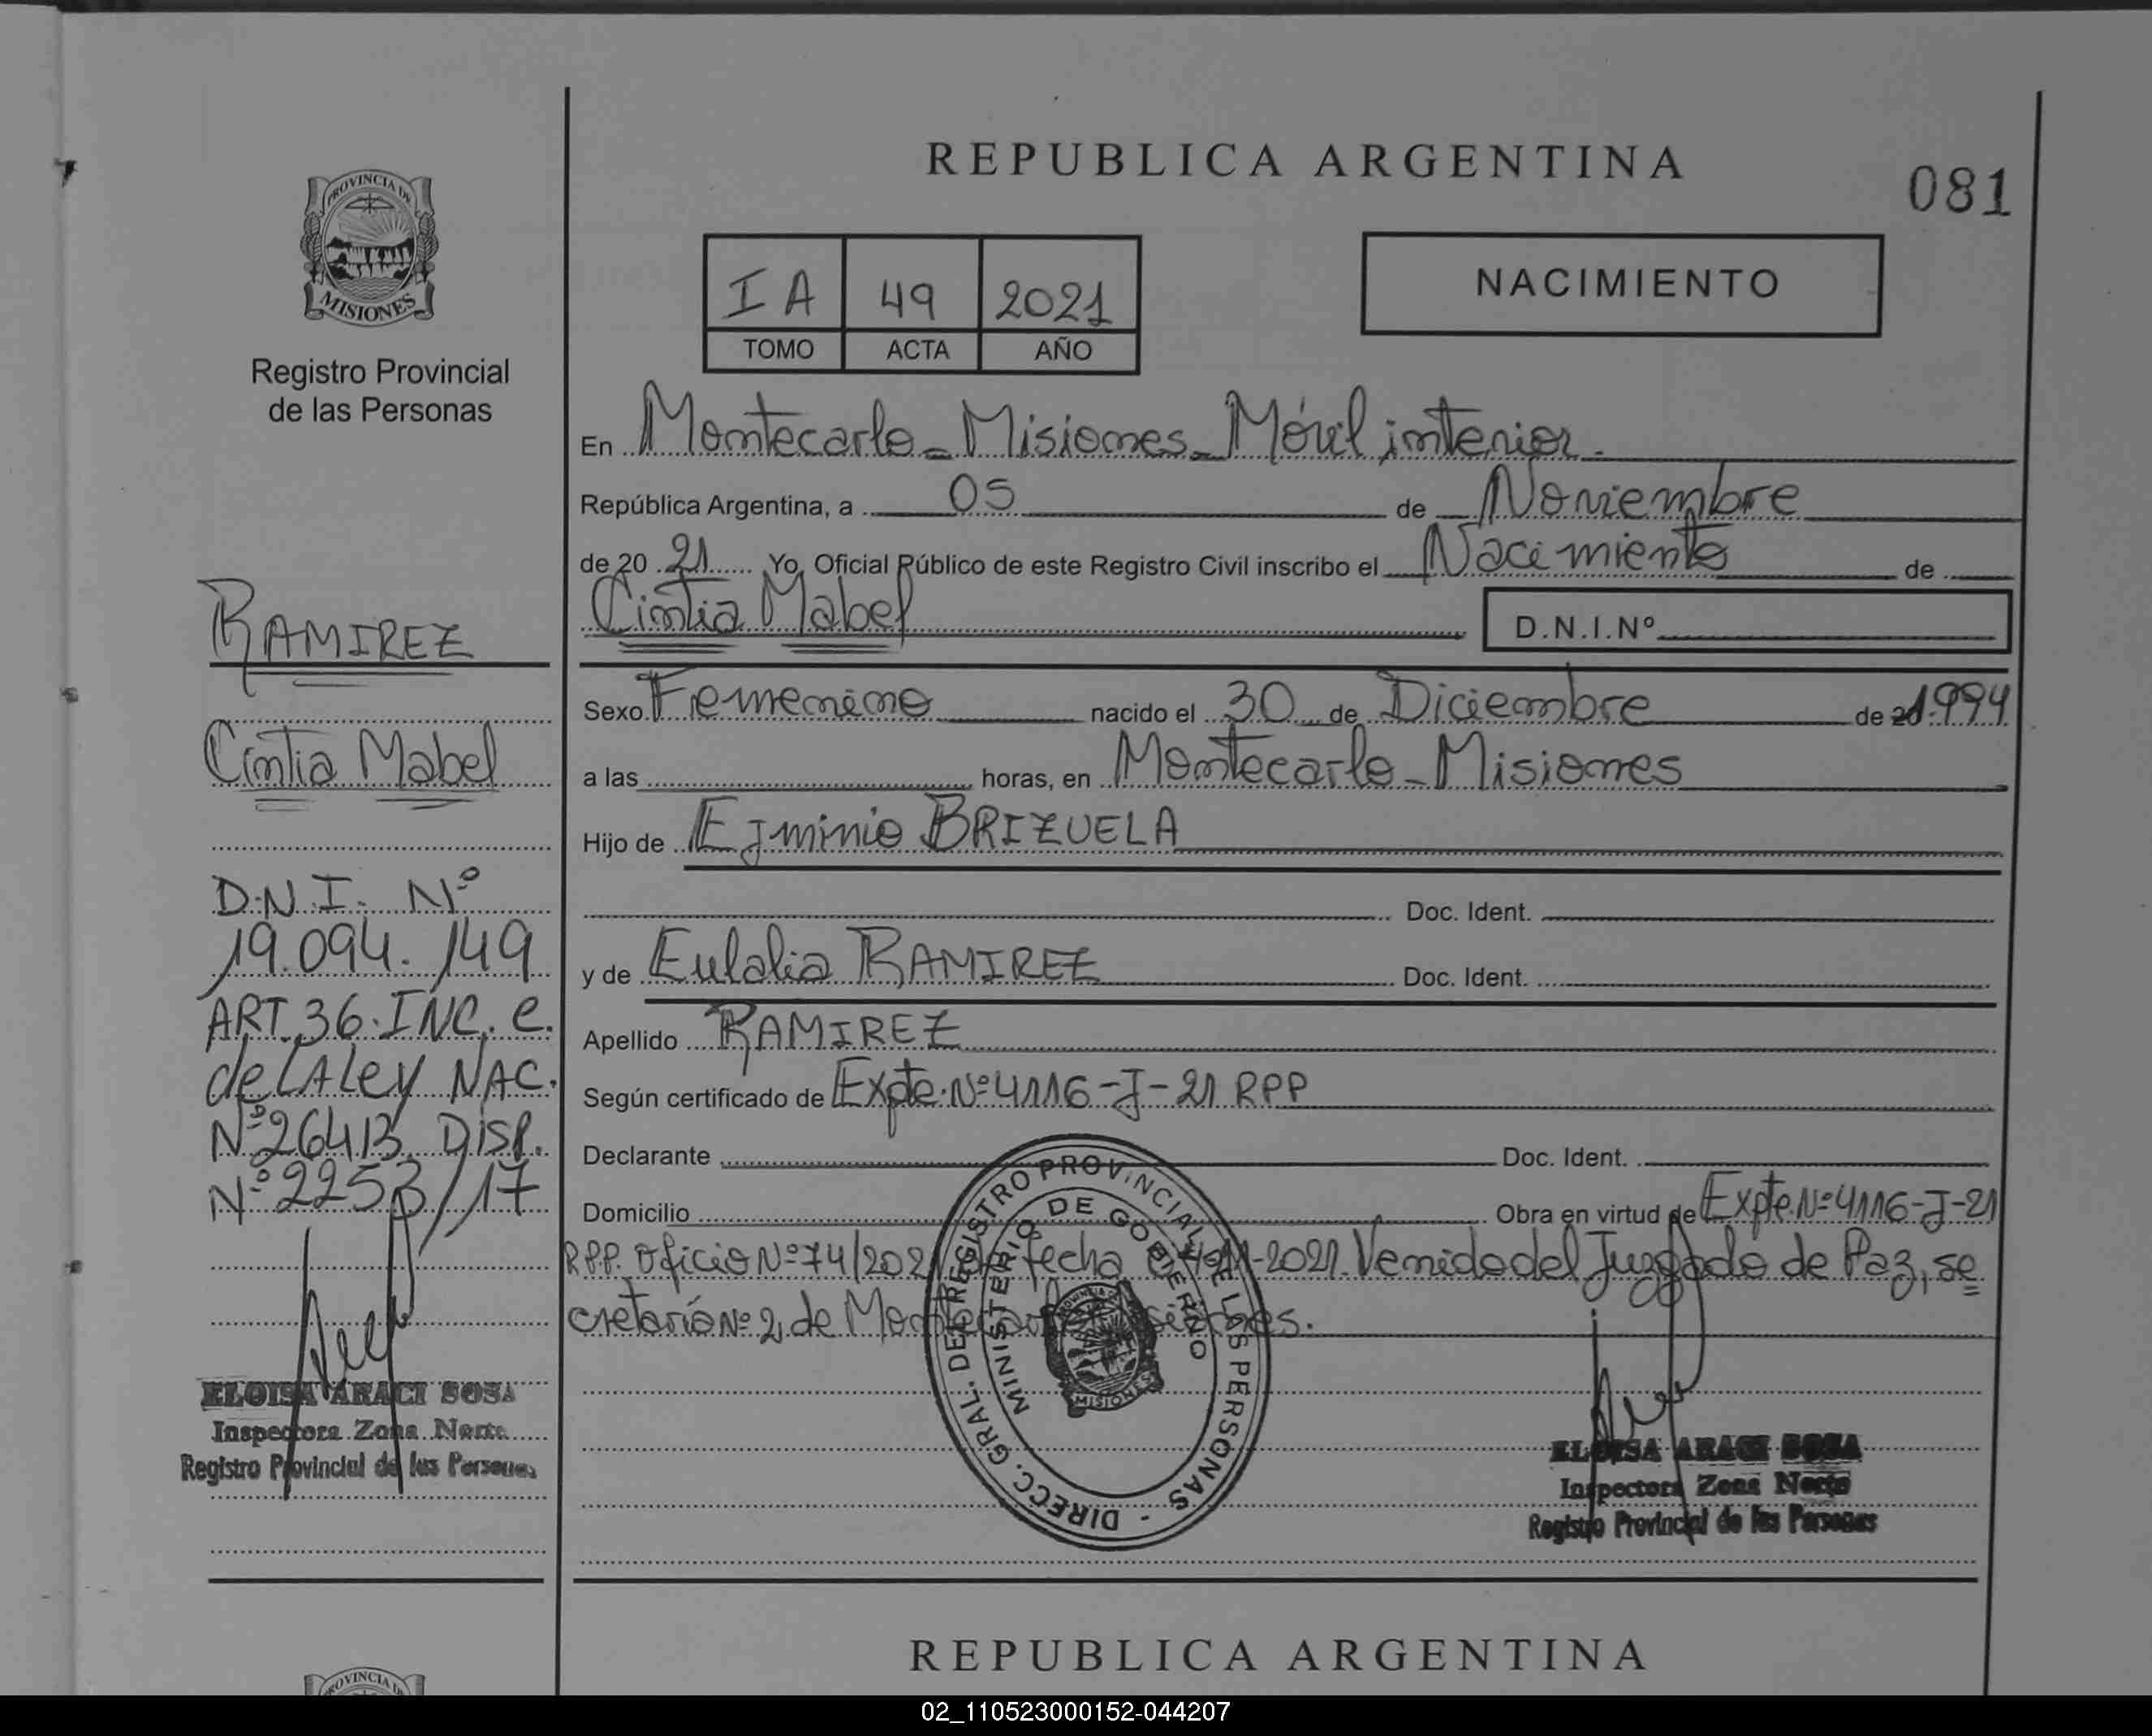 REPUBLICA ARGENTINA
081
PROVINCIA DE
MISIONES
Registro Provincial
de las Personas
IA 49 2021
TOMO ACTA AÑO
NACIMIENTO
En Montecarlo - Misiones - Móvil interior.
República Argentina, a 05 de Noviembre
de 20 21 Yo, Oficial Público de este Registro Civil inscribo el Nacimiento de
Cintia Mabel D.N.I.Nº
Sexo Femenino nacido el 30 de Diciembre de 20 1994
a las horas, en Montecarlo - Misiones
Hijo de Ejminio BRIZUELA
Doc. Ident.
y de Eulalia RAMIREZ Doc. Ident.
Apellido RAMIREZ
Según certificado de Expte. Nº 4116-J-21 RPP
Declarante Doc. Ident.
Domicilio Obra en virtud de Expte. Nº 4116-J-21
RPP. Oficio Nº 74/202 fecha -2021. Venido del Juzgado de Paz, se
cretaría Nº 2, de
RAMIREZ
Cintia Mabel
D.N.I. Nº
19.094.149
ART. 36. INC. e.
de LA Ley NAC.
Nº 26413. DISP.
Nº 2253/17
ELOISA ARACI SOSA
Inspectora Zona Norte
Registro Provincial de las Personas
DIRECC. GRAL. DEL REGISTRO PROVINCIAL DE LAS PERSONAS
MINISTERIO DE GOBIERNO
MISIONES
ELOISA ARACI SOSA
Inspectora Zona Norte
Registro Provincial de las Personas
REPUBLICA ARGENTINA
PROVINCIA D
02_110523000152-044207